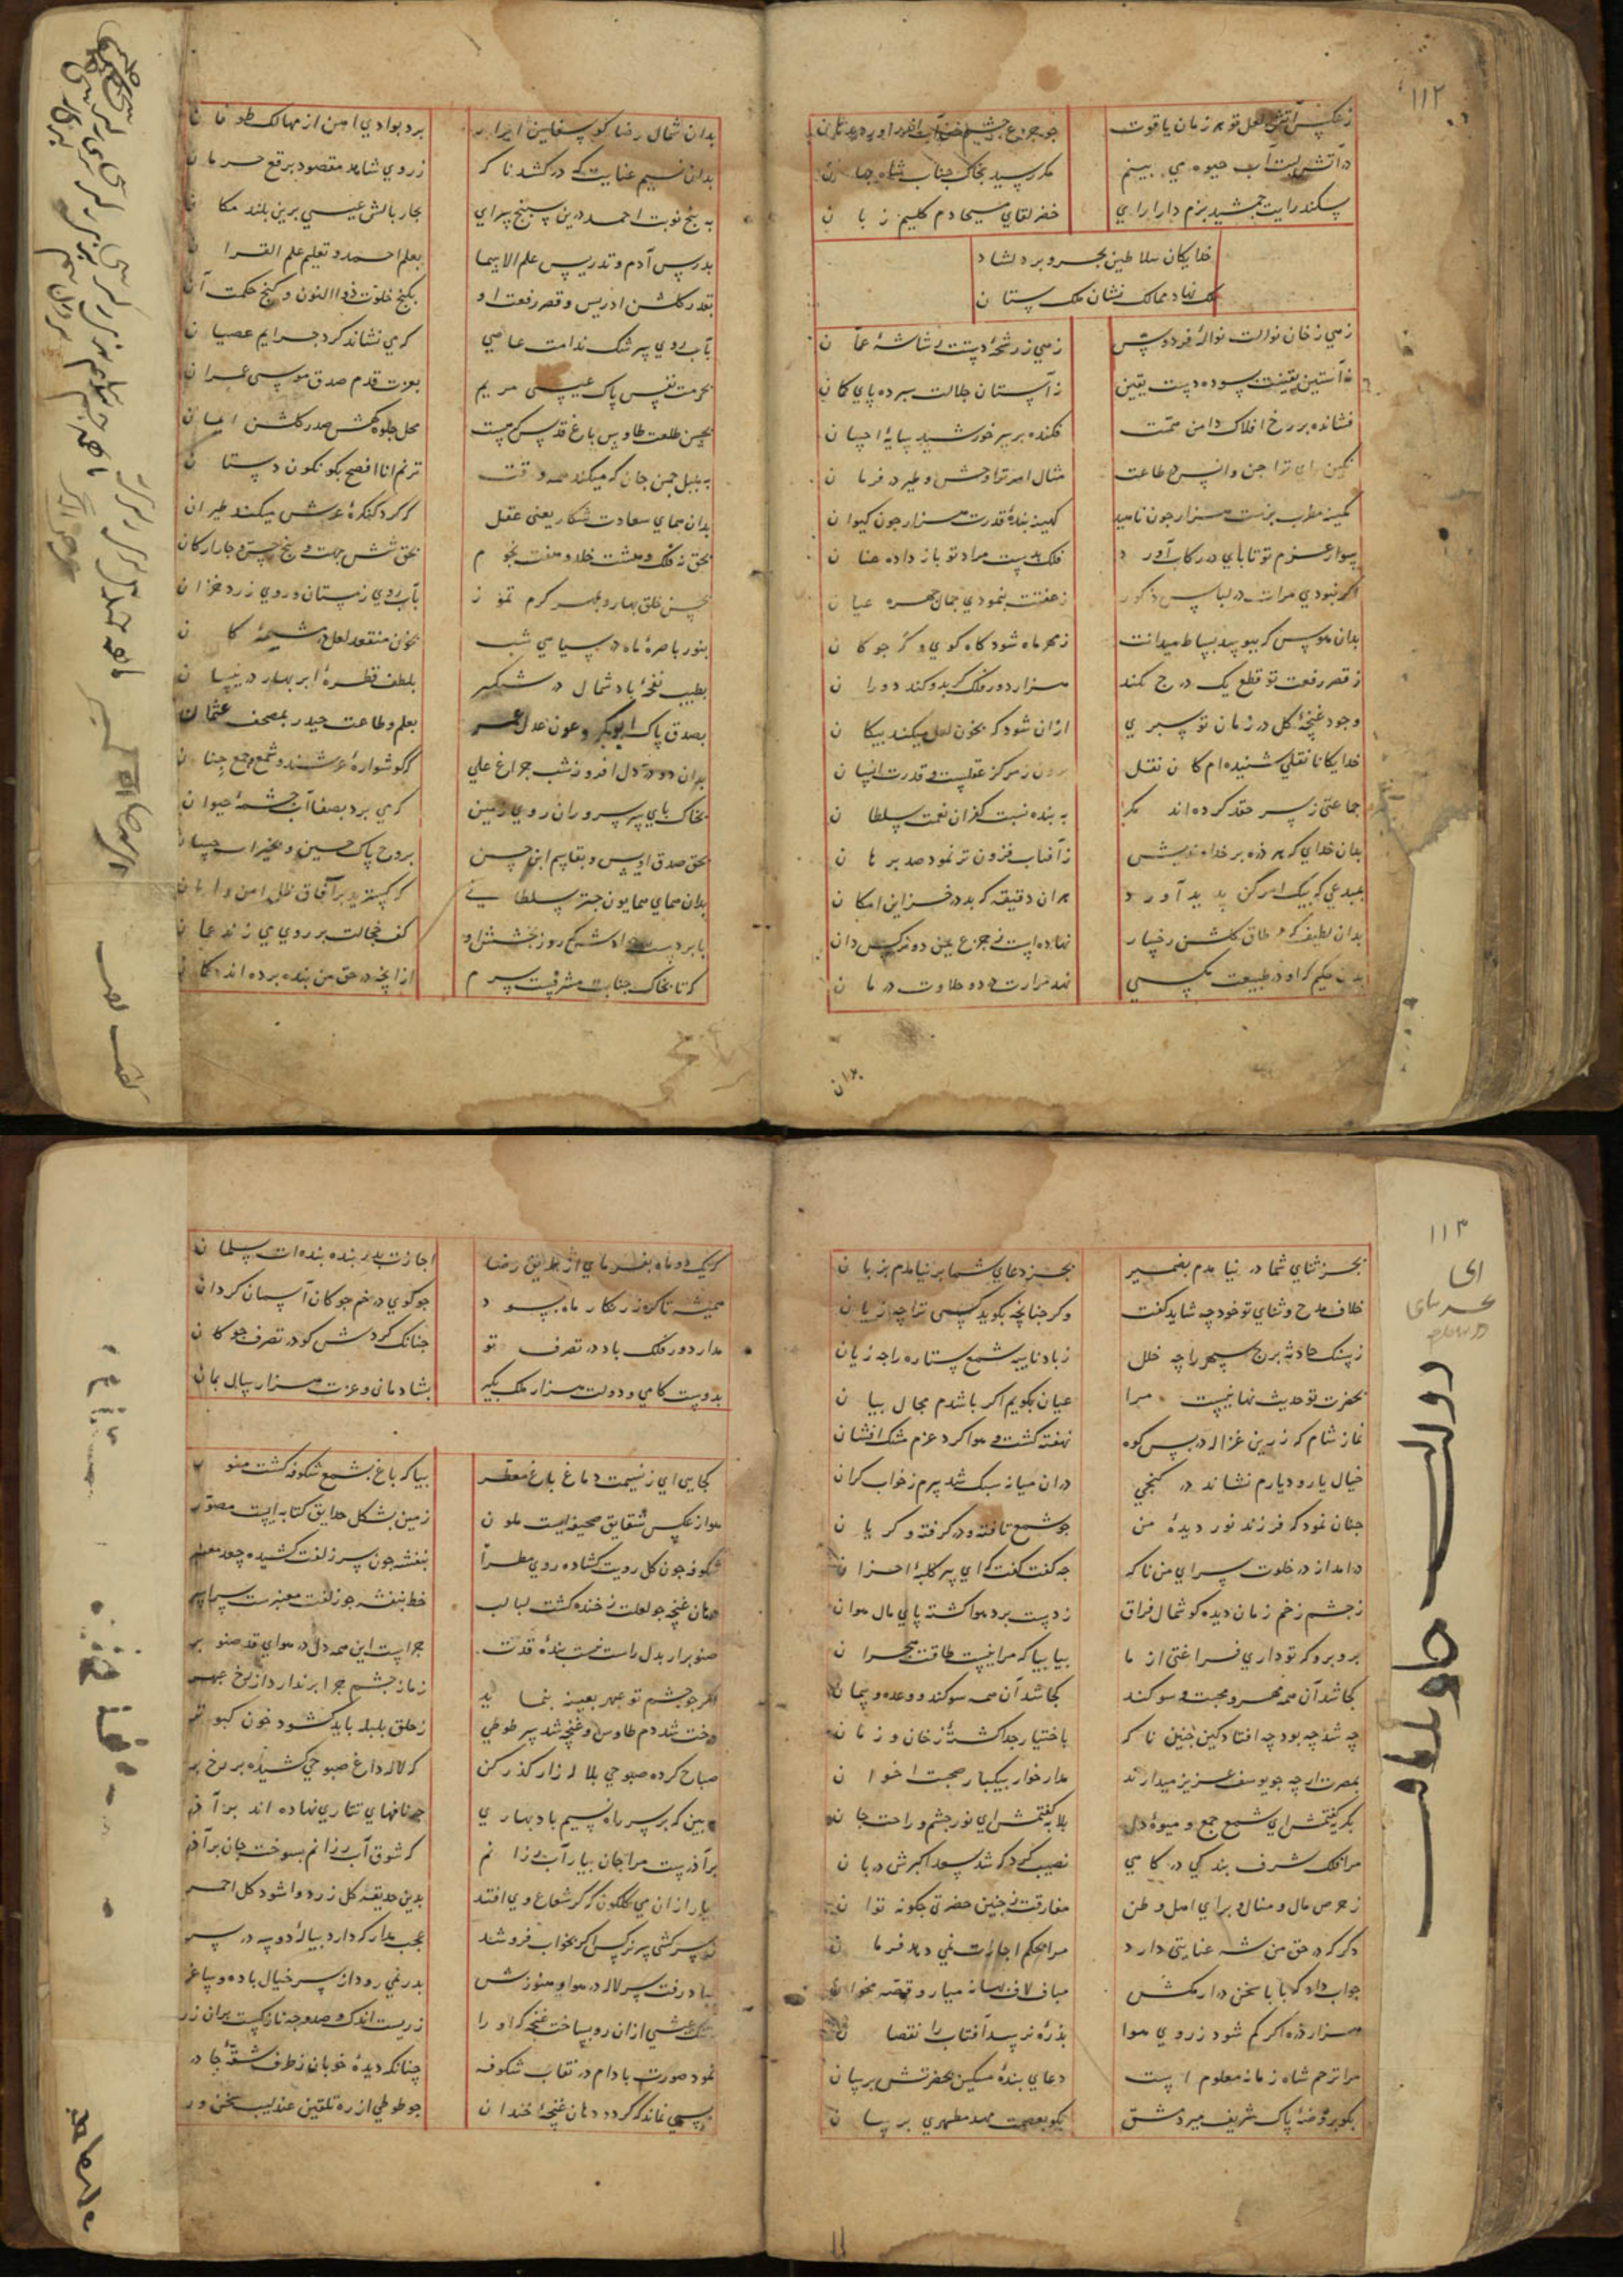 ۱۱۲
زعکس آتش لعل تو هر زمان یاقوت
در آتش است آب حیوه می بینم مکر رسید بخاک جناب شاه جهان
سکندر رایت جمشید بزم دارا رای خضر لقای مسیحا دم کلیم زبان
خدایکان سلاطین بحر و بر دلشاد
ملک نهاد ممالک نشان ملک ستان
زهی زخان نوالت نوالهٔ فردوس زهی ز رشحهٔ دستت رشاشهٔ عمان
در آستین یقینت سوده دست یقین ز آستان جلالت سپرده پای کمان
فشانده بر رخ افلاک دامن همت فکنده بر سر خورشید سایهٔ احسان
نکین رای ترا جن و انس در طاعت مثال امر ترا وحش و طیر در فرمان
کمینه مطرب بزمت هزار چون ناهید کهینه بندهٔ قدرت هزار چون کیوان
سوار عزم تو تا پای در رکاب آورد فلک بدست مراد تو باز داده عنان
اکر نبودی مرات در لباس ذکور زعفتت ننمودی جمال چهره عیان
بدان هوس که ببوسد بساط میدانت ز مهر ماه شود کاه کوی و که چوکان
ز قصر رفعت تو قطع یک درج نکند هزار دور فلک کر بدو کند دوران
وجود غنچهٔ کل در زمان تو سپری ازان شود که بخون لعل میکند پیکان
خدایکانا نقلی شنیده ام کان نقل برون ز مرکز عقلست و قدرت انسان
جماعتی ز سر حقد کرده اند مکر به بنده نسبت کفران نعمت سلطان
بدان خدای که هر ذره بر خداوندیش ز آفتاب فزون تر نمود صد برهان
بمبدعی که بیک امر کن پدید آورد هر آن دقیقه که بد در خزاین امکان
بدان لطیف که بر طاق کلشن رخسار نهاده است ز جزع یمن دو نرکس دان
بدان حکیم که او در طبیعت مکسی نهد مرارت در دو حلاوت درمان
بدان
بدان شمال رضا کو سفاین ابرار برد بوادی امن از مهالک طوفان
بدان نسیم عنایت که در کشد ناکه ز روی شاهد مقصود برقع حرمان
به پنج نوبت احمد درین سپنج سرای بچار بالش عیسی برین بلند مکان
بدرس آدم و تدریس علم الاسما بعلم احمد و تعلیم علم القرآن
بقدر کلشن ادریس و قصر رفعت او بکنج خلوت ذوالنون و کنج حکمت آن
بآب روی سرشک ندامت عاصی که می نشاند کرد جرایم عصیان
بحرمت نفس پاک عیسی مریم بعزت قدم صدق موسی عمران
بحسن طلعت طاوس باغ قدس که هست محل جلوه کهش صدر کلشن ایمان
به بلبل چمن جان که میکند همه وقت ترنم انا افصح بکونکون دستان
بدان همای سعادت شکار یعنی عقل که کرد کنکرهٔ عرش میکند طیران
بحق نه فلک و هشت خلد و هفت نجوم بحق شش جهت و پنج حس و چار ارکان
بحسن خلق بهار و بمهر کرم تموز بآب روی زمستان و روی زرد خزان
بنور باصرهٔ ماه در سیاهی شب بخون منعقد لعل در مشیمهٔ کان
بطیب نفحهٔ باد شمال در شبکیر بلطف قطرهٔ ابر بهار در نیسان
بصدق پاک ابوبکر و عون عدل عمر بعلم و طاعت حیدر بمصحف عثمان
بدان دو در دل افروز شب چراغ علی که کوشوارهٔ عرشند و شمع جمع جنان
بخاک پای سر سروران روی زمین که می برد بصفا آب چشمهٔ حیوان
بحق صدق اویس و بقاسم ابن حسن بروح پاک حسین و بخیرات حسان
بدان همای همایون چتر سلطانی که کسترید بر آفاق ظل امن و امان
بابر دست جوادش که روز بخشش او کف خجالت بر روی می زند عمان
که تا بخاک جناب تو مشرفست سرم از آنچه در حق من بنده برده اند کمان
۱۱۳
بجز ثنای شما در نیامدم بضمیر بجز دعای شما بر نیامدم بزبان
خلاف مدح و ثنای تو خود چه شاید کفت وکر چنانچه بکوید کسی ترا چه زیان
ز سنک حادثه برج سپهر را چه خلل ز باد نایبه شمع ستاره را چه زیان
بحضرت تو حدیث نهانیست مرا عیان بکویم اکر باشدم مجال بیان
نماز شام که زرین غزاله در پس کوه نهفته کشت و هوا کرد عزم مشک افشان
خیال یار و دیارم نشاند در کنجی در ان میانه سبک شد سرم ز خواب کران
چنان نمود که فرزند نور دیدهٔ من چو شمع تافته و در کرفته و کریان
در امد از در خلوت سرای من ناکه چه کفت کفت که ای پیر کلبهٔ احزان
ز چشم زخم زمان دیده کو شمال فراق ز دست برد هوا کشته پای مال هوان
برو برو که تو داری فراغتی از ما بیا بیا که مرا نیست طاقت هجران
کجا شد آن همه مهر و محبت و سوکند کجا شد آن همه سوکند و وعده و پیمان
چه شد چه بود چه افتاد کین چنین ناکه باختیار جدا کشتهٔ ز خان و ز مان
بمصرت ارچه چو یوسف عزیز میدارند مدار خوار بیکبار صحبت اخوان
بکریه کفتمش ای شمع جمع و میوهٔ دل بلابه کفتمش ای نور چشم و راحت جان
مرا فلک شرف بندکی درکاهی نصیب کرد که شد سعد اکبرش دربان
ز حرص مال و منال و برای اهل و طن مفارقت ز چنین حضرتی چکونه توان
دکر که در حق من شه عنایتی دارد مرا بحکم اجازت نمی دهد فرمان
جواب داد که بابا سخن دراز مکش مباف لاف بهانه میار و قصه مخوان
هزار ذره اکر کم شود ز روی هوا بذرهٔ نرسد آفتاب را نقصان
مرا ترحم شاه زمانه معلوم است دعای بندهٔ مسکین بحضرتش برسان
بکو بروضهٔ پاک شریف میر دمشق بکو بعصمت مهد مطهری برسان
که یک دو ماه بفرمای از طریق رضا اجازت پدر بنده بنده ات سلمان
همیشه تا کوی زرنکار ماه بود چو کوی در خم چوکان آسمان کردان
مدار دور فلک باد در تصرف تو چنانک کردش کو در تصرف چوکان
بدوست کامی و دولت هزار ملک بکیر بشادمانی و عزت هزار سال بمان
کجایی ای ز نسیمت دماغ باغ معطر بیا که باغ بشمع شکوفه کشت منور
هوا ز عکس شقایق صحیفه ایست ملون زمین بشکل حدایق کتابه ایست مصور
شکوفه چون کل رویت کشاده روی مطرا بنفشه چون سر زلفت کشیده جعد معنبر
دهان غنچه چو لعلت ز خنده کشت لبالب خط بنفشه چو زلفت معنبرست سراسر
صنوبر ار بدل راست نیست بندهٔ قدت چراست این همه دل در هوای قد صنوبر
صباح کرده صبوحی بلاله زار کذر کن که لاله داغ صبوحی کشیده بر رخ
ببین که بر سر راه نسیم باد بهاری چه نافهای تتاری نهاده اند بر آذر
بر آذرست مرا جان بیار آب رزانم که شوق آب رزانم بسوخت جان بر آذر
بیار از ان می کلکون که کر شعاع وی افتد بدین حدیقه کل زرد وا شود کل احمر
عجب مدار که دارد پیالهٔ دو سه در سر
بدر نمی رود از سر خیال باده و ساغر
نمود صورت بادام در نقاب شکوفه چنانکه دیدهٔ خوبان ز طرف شقهٔ چادر
بسی نماند که کردد دهان غنچهٔ خندان چو طوطی از ره تلقین عندلیب سخن ور